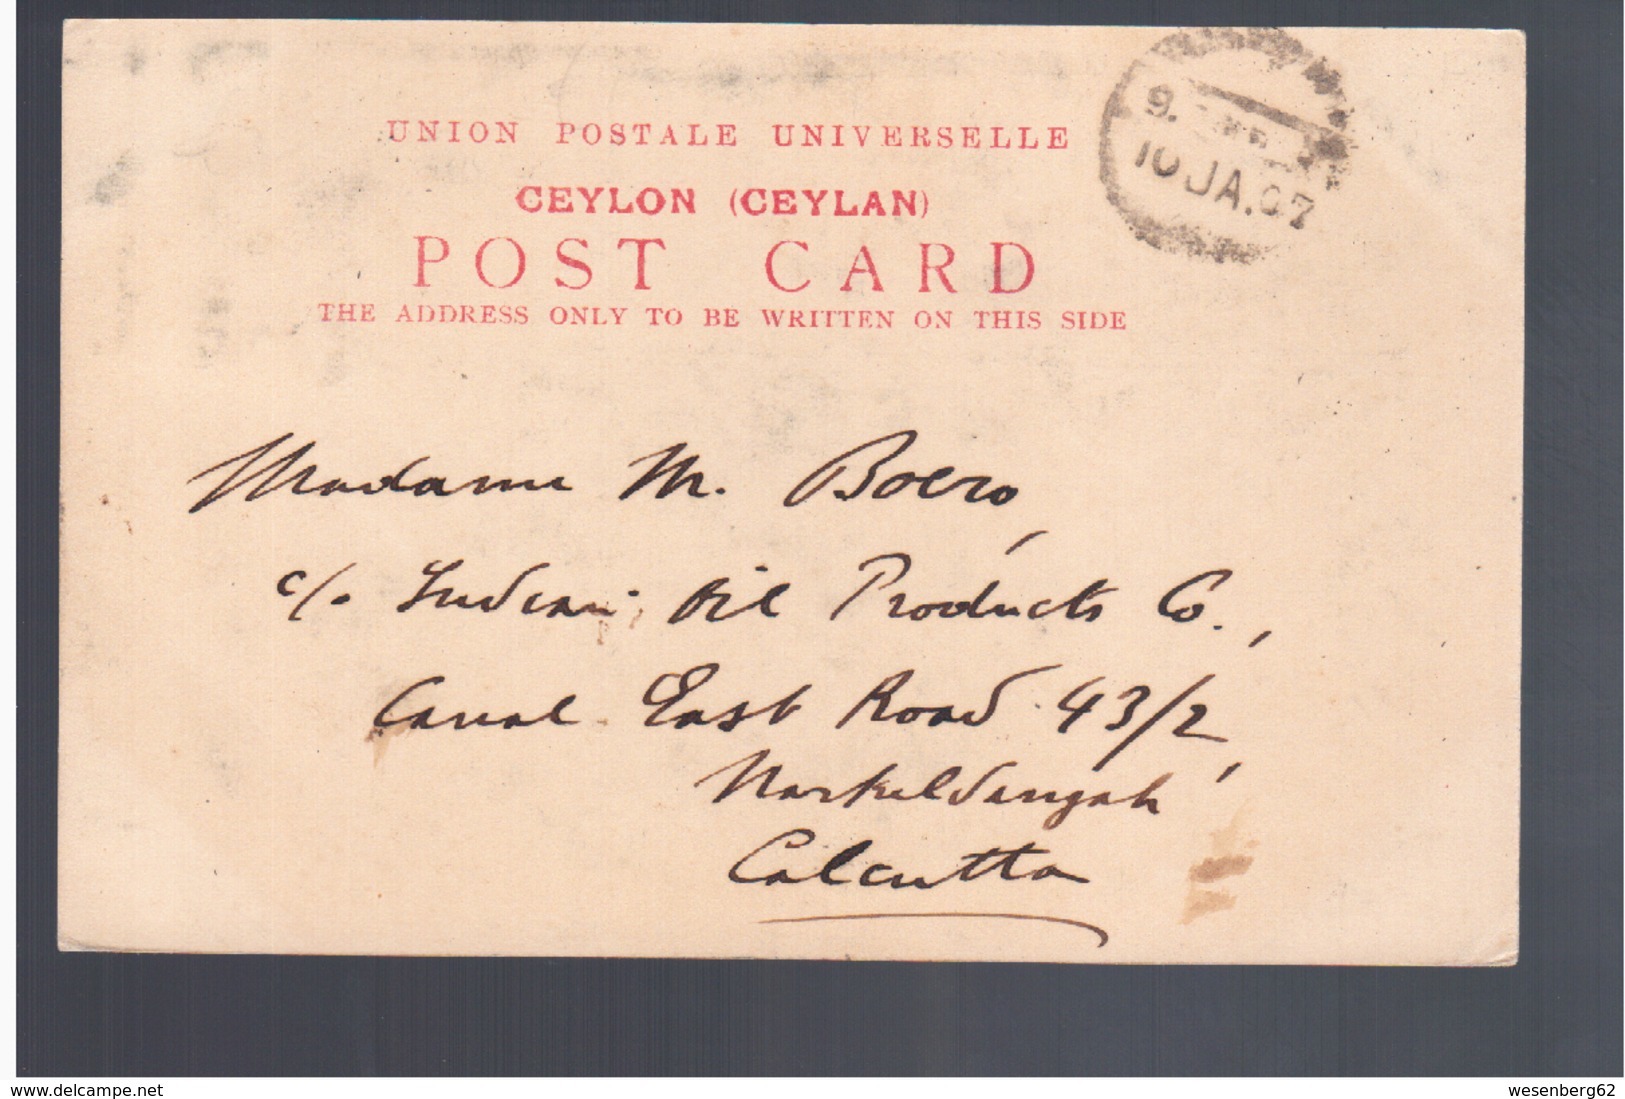 UNION POSTALE UNIVERSELLE
CEYLON (CEYLAN)
POST CARD
THE ADDRESS ONLY TO BE WRITTEN ON THIS SIDE
9.
10 JA.07
Madame M. Boero,
c/o. Indian Oil Products Co.,
Canal East Road 43/2,
Narkeldangah
Calcutta
www.delcampe.net
wesenberg62